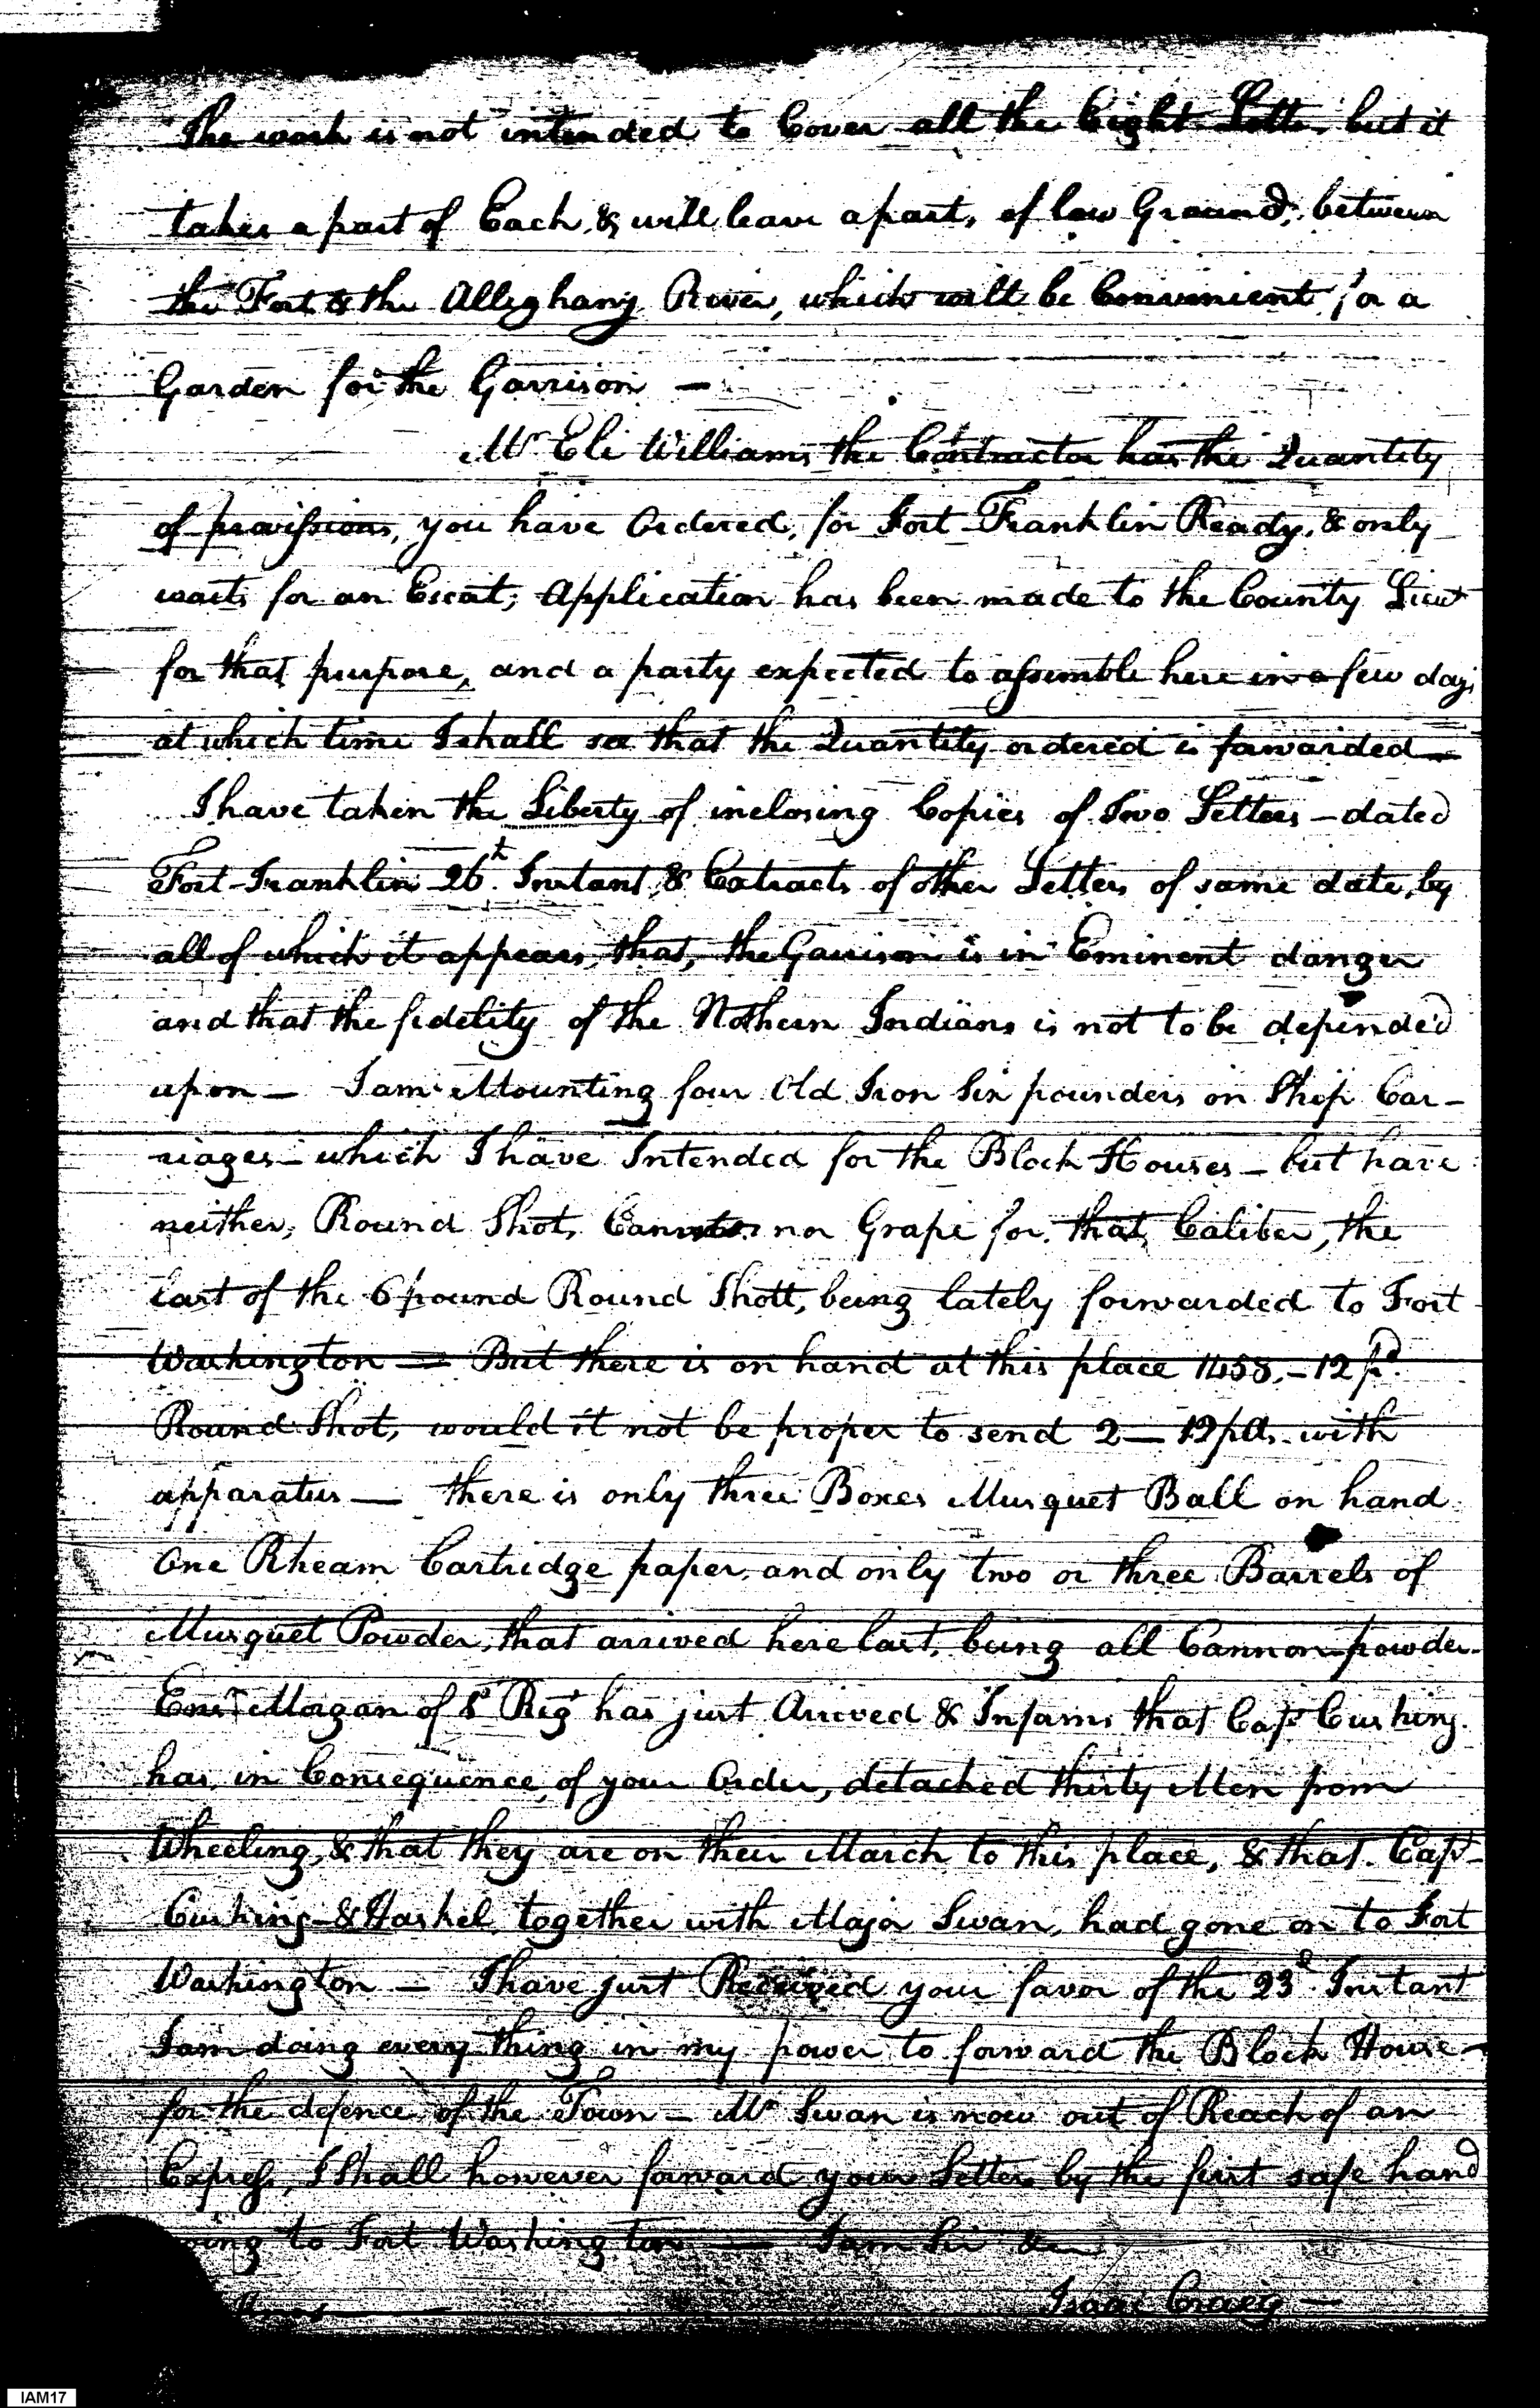 The work is not intended to Cover all the Eight Lotts, but it
takes a part of Each, & will leave a part, of low Ground, between
the Fort & the Alleghany River, which will be Convinient for a
Garden for the Garrison —
Mr Eli Williams the Contractor has the Quantity
of provissions, you have Ordered, for Fort Franklin Ready, & only
waits for an Escort; Application has been made to the County Lieut
for that purpose, and a party expected to assemble here in a few days
at which time I shall see that the Quantity ordered is forwarded —
I have taken the Liberty of inclosing Copies of Two Letters – dated
Fort-Franklin 26t. Instant, & Extracts of other Letters of same date, by
all of which it appears, that, the Garrison is in Eminent danger
and that the fidelity of the Nothern Indians is not to be depended
upon — I am Mounting four Old Iron Six pounders on Ship Car-
riages – which I have Intended for the Block Houses – but have
neither, Round Shot, nor Grape for that Caliber, the
last of the 6 pound Round Shott, being lately forwarded to Fort
Washington — But there is on hand at this place 1458, – 12 pd.
Round Shot, would it not be proper to send 2 — 12 pds. with
apparatus — there is only three Boxes Musquet Ball on hand
One Rheam Cartridge paper, and only two or three Barrels of
Musquet Powder, that arrived here last, being all Cannon powder.
Ensn Morgan of Regt has just Arrived & Informs that Capt Cushing
has, in Consequence, of your Order, detached thirty Men from
Wheeling, & that they are on their March to this place, & that Capt
Cushing & Haskel together with Major Swan, had gone on to Fort
Washington — I have just Received your favor of the 23d. Instant
I am doing every thing in my power to forward the Block House —
for the defence of the Town — Mr Swan is now out of Reach of an
Express, I Shall however forward your Letters by the first safe hand
going to Fort Washington — I am Sir &c
Isaac Craig —
IAM17